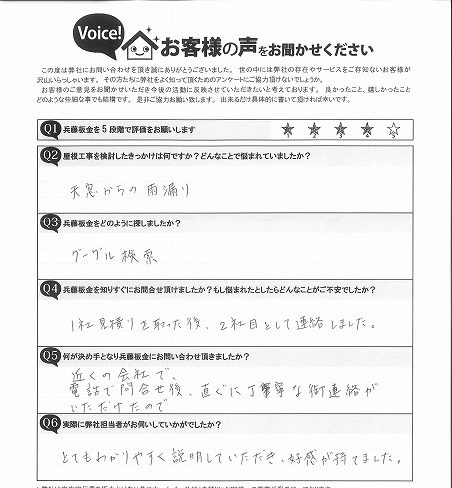 Voice!
お客様の声をお聞かせください
この度は弊社にお問い合わせを頂き誠にありがとうございました。世の中には弊社の存在やサービスをご存知ないお客様が
沢山いらっしゃいます。その方たちに弊社をよく知って頂くためのアンケートにご協力頂けないでしょうか。
お客様のご意見をお聞かせいただき今後の活動に反映させていただきたいと考えております。良かったこと、嬉しかったこと
どのような些細な事でも結構です。是非ご協力お願い致します。出来るだけ具体的に書いて頂ければ幸いです。
Q1 兵藤板金を5段階で評価をお願いします
1 2 3 4 5
Q2 屋根工事を検討したきっかけは何ですか?どんなことで悩まれていましたか?
天窓からの雨漏り
Q3 兵藤板金をどのように探しましたか?
グーグル検索
Q4 兵藤板金を知りすぐにお問合せ頂けましたか?もし悩まれたとしたらどんなことがご不安でしたか?
1社見積り取った後、2社目として連絡しました。
Q5 何が決め手となり兵藤板金にお問い合わせ頂きましたか?
近くの会社で、
電話で問合せ後、直ぐに丁寧な御連絡が
いただけたので
Q6 実際に弊社担当者がお伺いしていかがでしたか?
とてもわかりやすく説明していただき、好感が持てました。